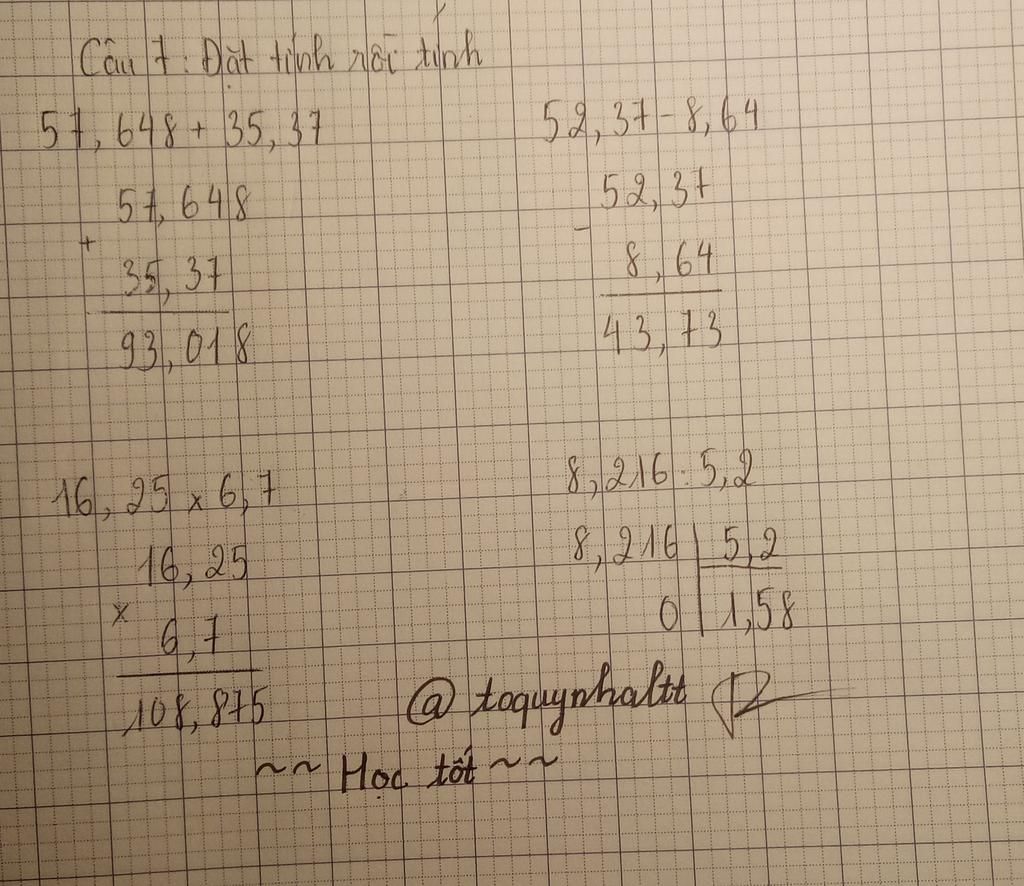 Câu 7: Đặt tính rồi tính
57,648 + 35,37
57,648
+
35,37
93,018
52,37 - 8,64
52,37
-
8,64
43,73
16,25 x 6,7
16,25
x
6,7
108,875
8,216 : 5,2
8,216 | 5,2
0 | 1,58
@toquynhaltt
~~ Học tốt ~~